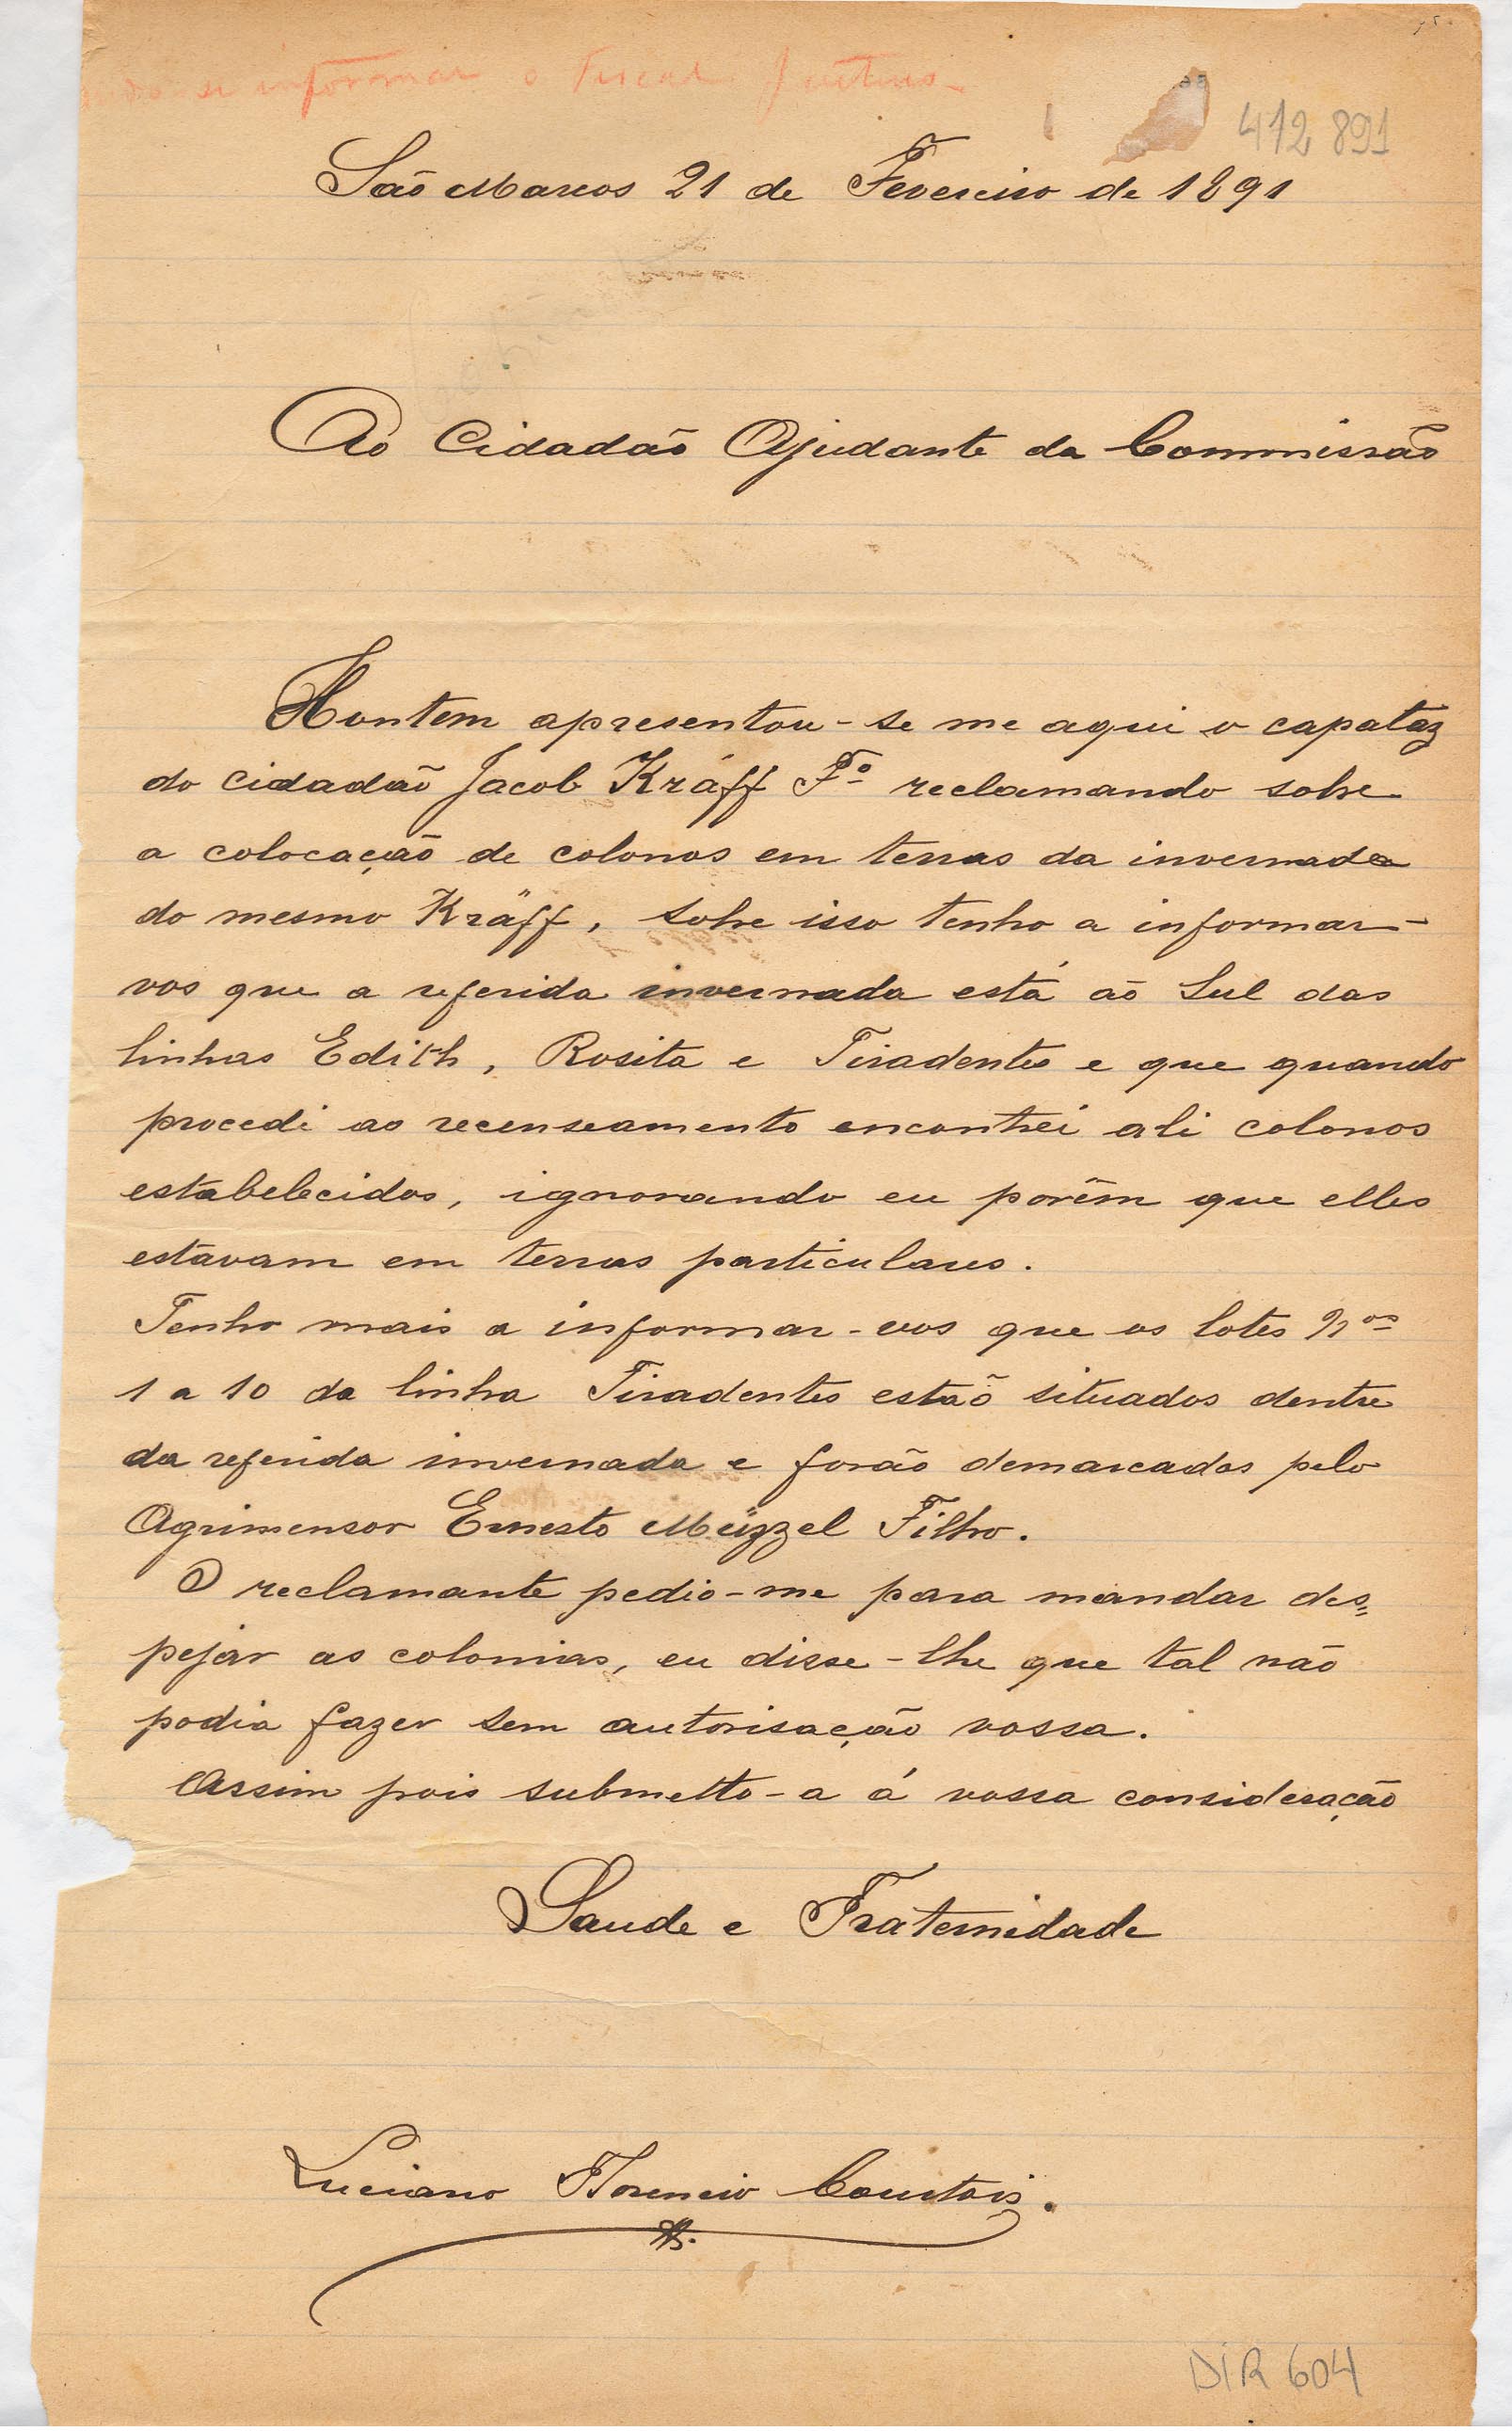 se informar o Fiscal
412 891
São Marcos 21 de Fevereiro de 1891
Ao Cidadão Ajudante da Commissão
Hontem apresentou-se me aqui o capataz
do cidadão Jacob Kräff Fº reclamando sobre
a colocação de colonos em terras da invernada
do mesmo Kräff, sobre isso tenho a informar-
vos que a referida invernada está aõ Sul das
linhas Edith, Rosita e Tiradentes e que quando
procedi ao recenseamento encontrei ali colonos
estabelecidos, ignorando eu porêm que elles
estavam em terras particulares.
Tenho mais a informar-vos que os lotes Nos
1 a 10 da linha Tiradentes estaõ situados dentre
da referida invernada e forão demarcados pelo
Agrimensor Ernesto Müzzel Filho.
O reclamante pedio-me para mandar des=
pejar as colonias, eu disse-lhe que tal não
podia fazer sem autorisação vossa.
Assim pois submetto-a á vossa consideração
Saude e Fraternidade
Luciano Florencio Courtois.
DIR 604